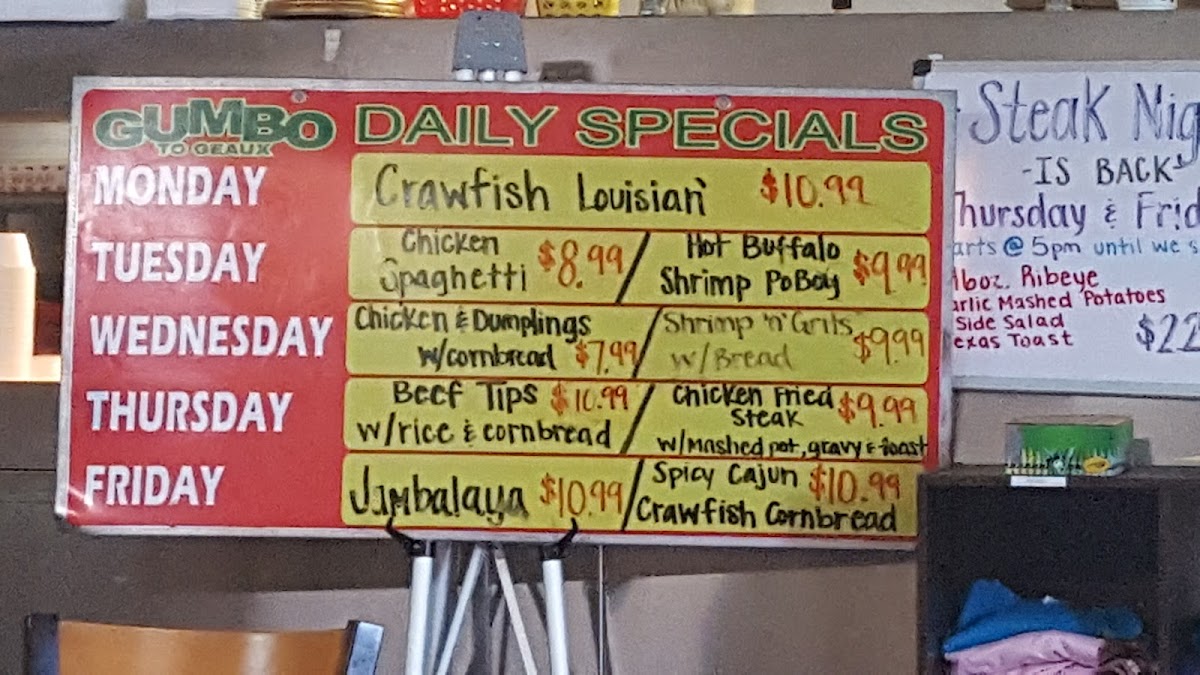 GUMBO
TO GEAUX
DAILY SPECIALS
MONDAY
Crawfish Louisian' $10.99
TUESDAY
Chicken
Spaghetti $8.99 /
Hot Buffalo
Shrimp PoBoy $9.99
WEDNESDAY
Chicken & Dumplings
w/cornbread $7.99 /
Shrimp 'n' Grits
w/Bread $9.99
THURSDAY
Beef Tips $10.99
w/rice & cornbread /
Chicken Fried
Steak $9.99
w/Mashed pot, gravy & toast
FRIDAY
Jambalaya $10.99 /
Spicy Cajun $10.99
Crawfish Cornbread
Steak Nig
-IS BACK
Thursday & Frid
arts @ 5pm until we s
16oz. Ribeye
arlic Mashed Potatoes
Side Salad
exas Toast
$22